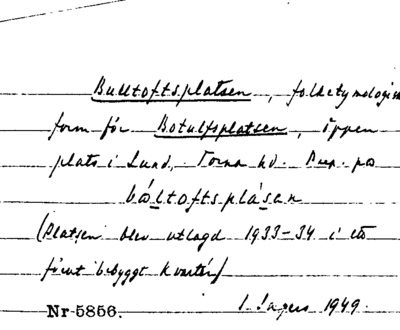 Bulltoftsplatsen, folketymologisk
form för Botulfsplatsen, öppen
plats i Lund, Torna hd. Ex. på
bo̱ltoftsplá̱sen
(Platsen blev utlagd 1933–34 i ett
förut bebyggt kvarter)
Nr 5856. I. Ingers 1949.